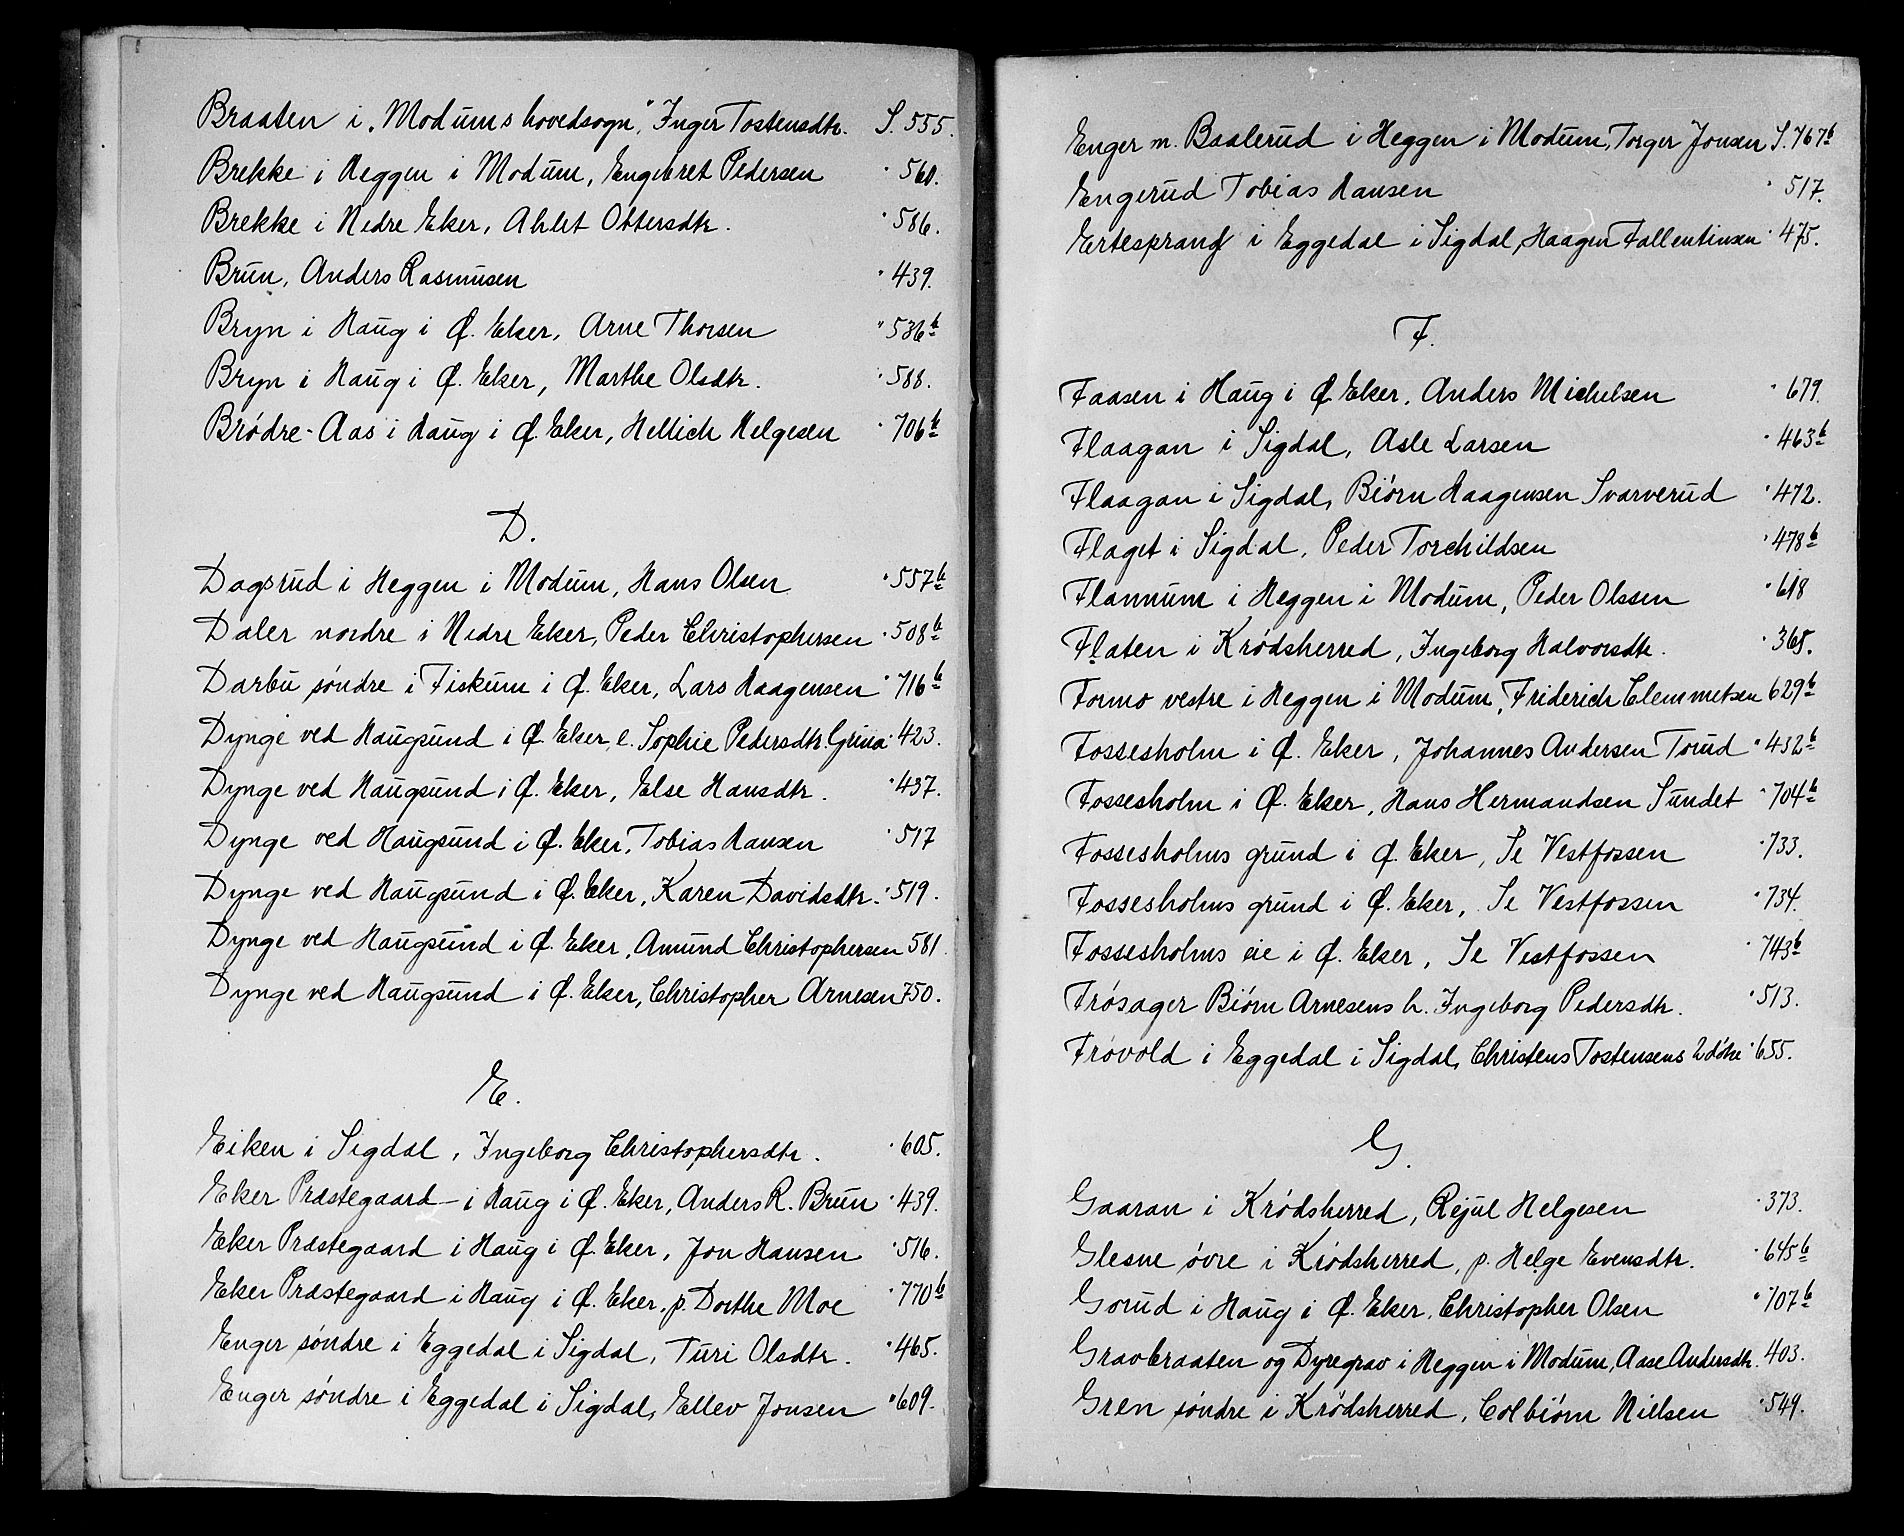 Braaten i "Modums hovedsogn," Inger Tostensdtr. S. 555.
Brekke i Heggen i Modum, Engebret Pedersen " 560.
Brekke i Nedre Eker, Ahlet Ottersdtr. " 586.
Brun, Anders Rasmusen " 439.
Bryn i Haug i Ø. Eker, Arne Thorsen " 536b
Bryn i Haug i Ø. Eker, Marthe Olsdtr. " 588.
Brødre-Aas i Haug i Ø. Eker, Hellich Helgesen " 706b
D.
Dagsrud i Heggen i Modum, Hans Olsen " 557b
Daler nordre i Nedre Eker, Peder Christophersen " 508b
Darbu søndre i Fiskum i Ø. Eker, Lars Haagensen " 716b
Dynge ved Haugsund i Ø. Eker, e. Sophie Pedersdtr. Griia " 423.
Dynge ved Haugsund i Ø. Eker, Else Hansdtr. " 437.
Dynge ved Haugsund i Ø. Eker, Tobias Hansen " 517
Dynge ved Haugsund i Ø. Eker, Karen Davidsdtr. " 519.
Dynge ved Haugsund i Ø. Eker, Amund Christophersen 581.
Dynge ved Haugsund i Ø. Eker, Christopher Arnesen 750.
E.
Eiken i Sigdal, Ingeborg Christophersdtr. " 605.
Eker Præstegaard i Haug i Ø. Eker, Anders R. Brun " 439.
Eker Præstegaard i Haug i Ø. Eker, Jon Hansen " 516.
Eker Præstegaard i Haug i Ø. Eker, p. Dorthe Moe " 770b
Enger søndre i Eggedal i Sigdal, Turi Olsdtr. " 465.
Enger søndre i Eggedal i Sigdal, Ellev Jonsen " 609.
Enger m. Baalerud i Heggen i Modum, Torger Jonsen S. 767b
Engerud Tobias Hansen " 517.
Ertesprang i Eggedal i Sigdal, Haagen Fallentinsen " 475.
F.
Faasen i Haug i Ø. Eker, Anders Michelsen " 679.
Flaagan i Sigdal, Asle Larsen " 463b
Flaagan i Sigdal, Biørn Haagensen Svarverud " 472.
Flaget i Sigdal, Peder Torchildsen " 478b
Flannum i Heggen i Modum, Peder Olssen " 618
Flaten i Krødsherred, Ingeborg Halvorsdtr. " 368.
Formo vestre i Heggen i Modum, Friderich Clemmetsen 629b
Fossesholm i Ø. Eker, Johannes Andersen Torud " 432b
Fossesholm i Ø. Eker, Hans Hermandsen Sundet " 704b
Fossesholms grund i Ø. Eker, Se Vestfossen " 733.
Fossesholms grund i Ø. Eker, Se Vestfossen " 734.
Fossesholms eie i Ø. Eker, Se Vestfossen " 743b
Frøsager Biørn Arnesens h. Ingeborg Pedersdtr. " 513.
Frøvold i Eggedal i Sigdal, Christens Tostensens 2 døtre " 655.
G.
Gaaran i Krødsherred, Rejul Helgesen " 373.
Glesne øvre i Krødsherred, p. Helge Evensdtr. " 645b
Gorud i Haug i Ø. Eker, Christopher Olsen " 707b
Gravbraaten og Dyregrav i Heggen i Modum, Aase Andersdtr. 403.
Gren søndre i Krødsherred, Colbiørn Nielsen " 549.